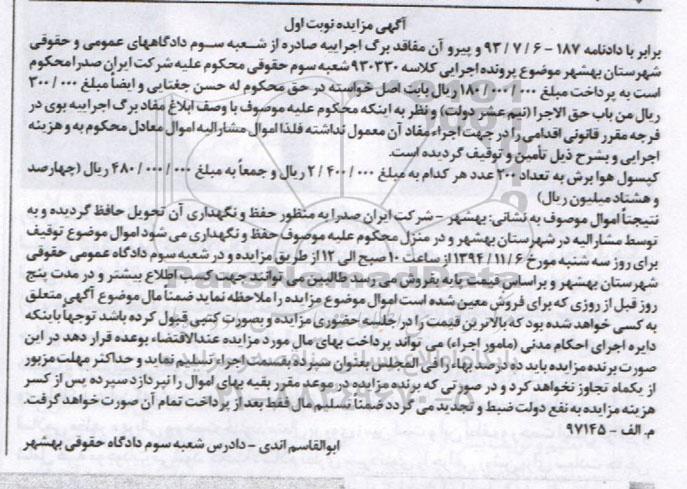 آگهی مزایده نوبت اول
برابر با دادنامه ۱۸۷ – ۹۳/۷/۶ و پیرو آن مفاقد برگ اجراییه صادره از شعبه سوم دادگاههای عمومی و حقوقی
شهرستان بهشهر موضوع پرونده اجرایی کلاسه ۹۳۰۳۳۰ شعبه سوم حقوقی محکوم علیه شرکت ایران صدرا محکوم
است به پرداخت مبلغ ۱۸۰/۰۰۰/۰۰۰ ریال بابت اصل خواسته در حق محکوم له حسن جغتایی و ایضاً مبلغ ۳۰۰/۰۰۰
ریال من باب حق الاجرا (نیم عشر دولت) و نظر به اینکه محکوم علیه موصوف با وصف ابلاغ مفاد برگ اجراییه بوی در
فرجه مقرر قانونی اقدامی را در جهت اجراء مفاد آن معمول نداشته فلذا اموال مشارالیه اموال معادل محکوم به و هزینه
اجرایی و بشرح ذیل تأمین و توقیف گردیده است.
کپسول هوا برش به تعداد ۲۰۰ عدد هر کدام به مبلغ ۲/۴۰۰/۰۰۰ ریال و جمعاً به مبلغ ۴۸۰/۰۰۰/۰۰۰ ریال (چهارصد
و هشتاد میلیون ریال)
نتیجتاً اموال موصوف به نشانی: بهشهر – شرکت ایران صدرا به منظور حفظ و نگهداری آن تحویل حافظ گردیده و به
توسط مشارالیه در شهرستان بهشهر و در منزل محکوم علیه موصوف حفظ و نگهداری می شود اموال موضوع توقیف
برای روز سه شنبه مورخ ۱۳۹۴/۱۱/۶ از ساعت ۱۰ صبح الی ۱۲ از طریق مزایده و در شعبه سوم دادگاه عمومی حقوقی
شهرستان بهشهر و براساس قیمت پایه بفروش می رسد طالبین می توانند جهت کسب اطلاع بیشتر و در مدت پنج
روز قبل از روزی که برای فروش معین شده است اموال موضوع مزایده را ملاحظه نماید ضمناً مال موضوع آگهی متعلق
به کسی خواهد شده بود که بالاترین قیمت را در جلسه حضوری مزایده و بصورت کتبی قبول کرده باشد توجهاً باینکه
دایره اجرای احکام مدنی (مامور اجراء) می تواند پرداخت بهای مال مورد مزایده عندالاقتضاء بوعده قرار دهد در این
صورت برنده مزایده باید ده درصد بهاء را فی المجلس بعنوان سپرده بقسمت اجراء تسلیم نماید و حداکثر مهلت مزبور
از یکماه تجاوز نخواهد کرد و در صورتی که برنده مزایده در موعد مقرر بقیه بهای اموال را نپردازد سپرده پس از کسر
هزینه مزایده به نفع دولت ضبط و تجدید می گردد ضمناً تسلیم مال فقط بعد از پرداخت تمام آن صورت خواهد گرفت.
م. الف – ۹۷۱۴۵
ابوالقاسم اندی – دادرس شعبه سوم دادگاه حقوقی بهشهر
ParsNamadData